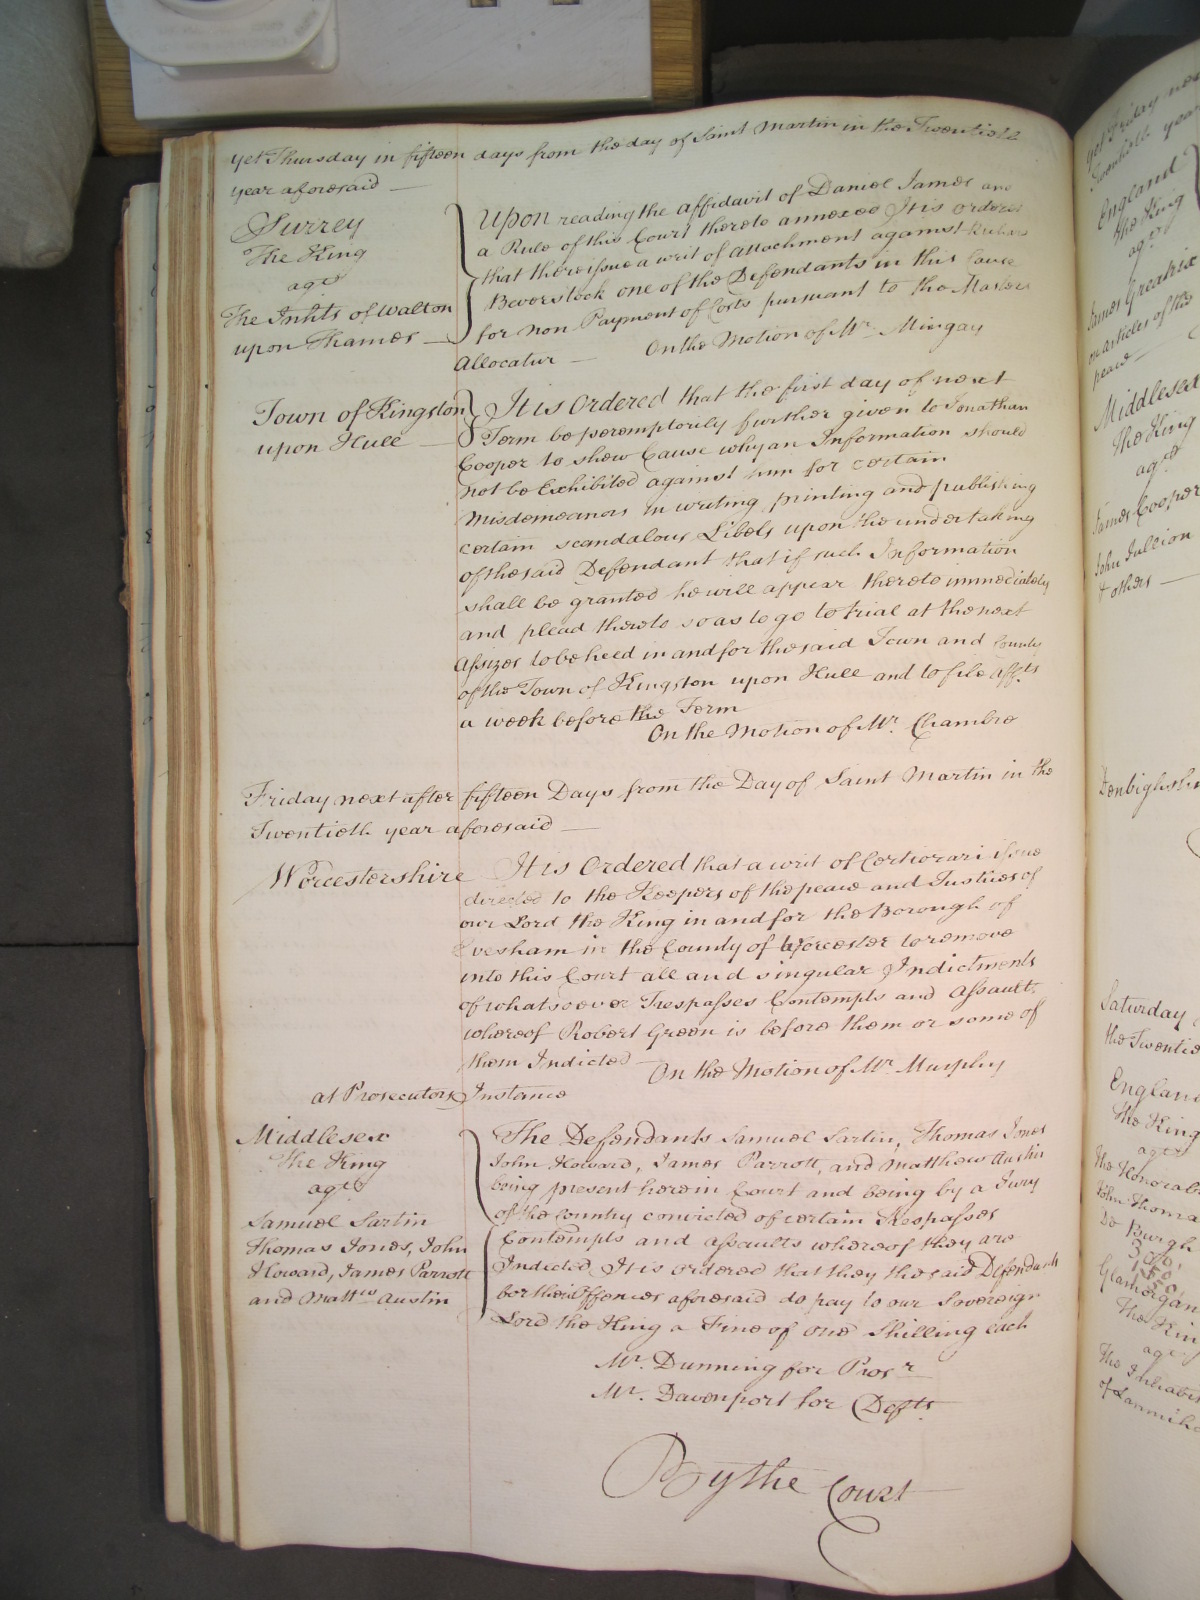 yet Thursday in fifteen days from the day of Saint Martin in the Twentieth
year aforesaid —
Surrey
The King
agt
The Inhts of Walton
upon Thames —
Upon reading the affidavit of Daniel James and
a Rule of this Court thereto annexed It is ordered
that there issue a writ of Attachment against Richard
Beverstock one of the Defendants in this Cause
for non Payment of Costs pursuant to the Masters
Allocatur — On the Motion of Mr. Mingay
Town of Kingston
upon Hull —
It is Ordered that the first day of next
Term be peremptorily further given to Jonathan
Cooper to shew Cause why an Information should
not be Exhibited against him for certain
Misdemeanors in writing printing and publishing
certain scandalous Libels upon the undertaking
of the said Defendant that if such Information
shall be granted he will appear thereto immediately
and plead thereto so as to go to trial at the next
Assizes to be held in and for the said Town and County
of the Town of Kingston upon Hull and to file affts
a week before the Term
On the Motion of Mr. Chambre
Friday next after fifteen Days from the Day of Saint Martin in the
Twentieth year aforesaid —
Worcestershire
It is Ordered that a writ of Certiorari issue
directed to the Keepers of the peace and Justices of
our Lord the King in and for the Borough of
Evesham in the County of Worcester to remove
into this Court all and singular Indictments
of whatsoever Trespasses Contempts and Assaults
whereof Robert Green is before them or some of
them Indicted — On the Motion of Mr. Murphy
at Prosecutors Instance
Middlesex
The King
agt
Samuel Sartin
Thomas Jones, John
Howard, James Parrott
and Mattw Austin
The Defendants Samuel Sartin, Thomas Jones
John Howard, James Parrott, and Matthew Austin
being present here in Court and being by a Jury
of the Country convicted of certain Trespasses
Contempts and assaults whereof they are
Indicted, It is ordered that they the said Defendants
for their Offences aforesaid do pay to our Sovereign
Lord the King a Fine of one Shilling each
Mr. Dunning for Prosr
Mr. Davenport for Defts
By the Court
yet Friday
Twentieth year
England
The King
agt
James Greatrix
on articles of the
peace —
Middlesex
The King
agt
James Cooper
John Jullion
& others —
Denbighshire
Saturday
the Twentie
England
The King
agt
The Honorab
John Thoma
De Burgh
Glamorgan
The Kin
agt
The Inhabi